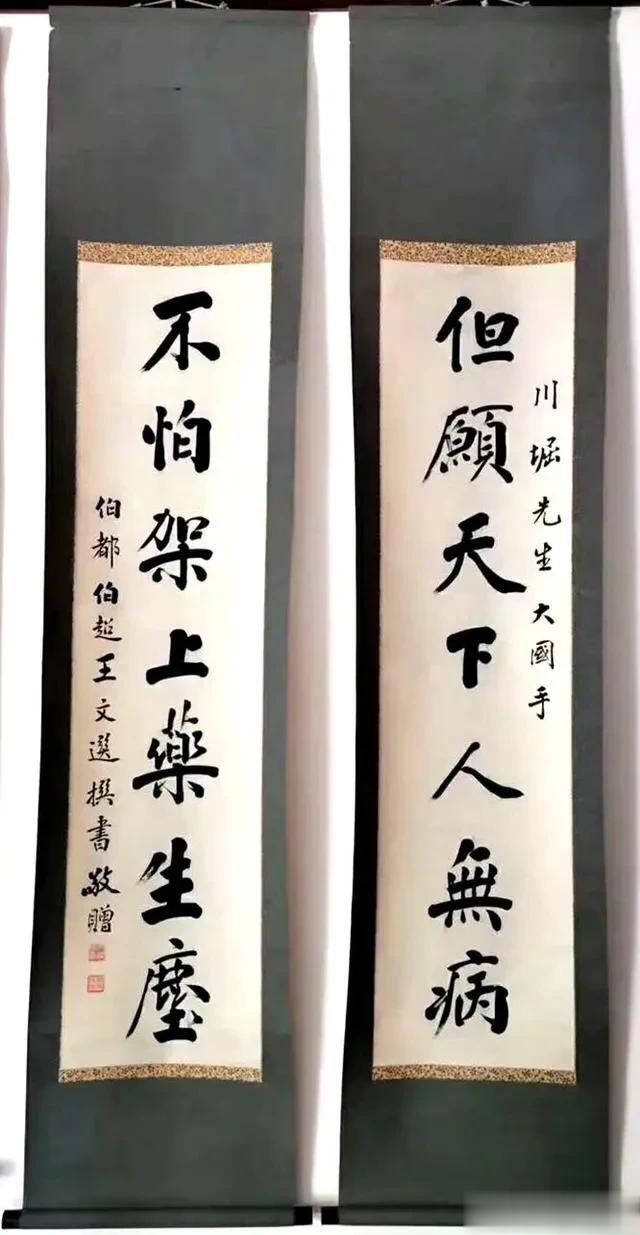 川堀先生大國手
但願天下人無病
不怕架上藥生塵
伯都伯超王文選撰書敬贈